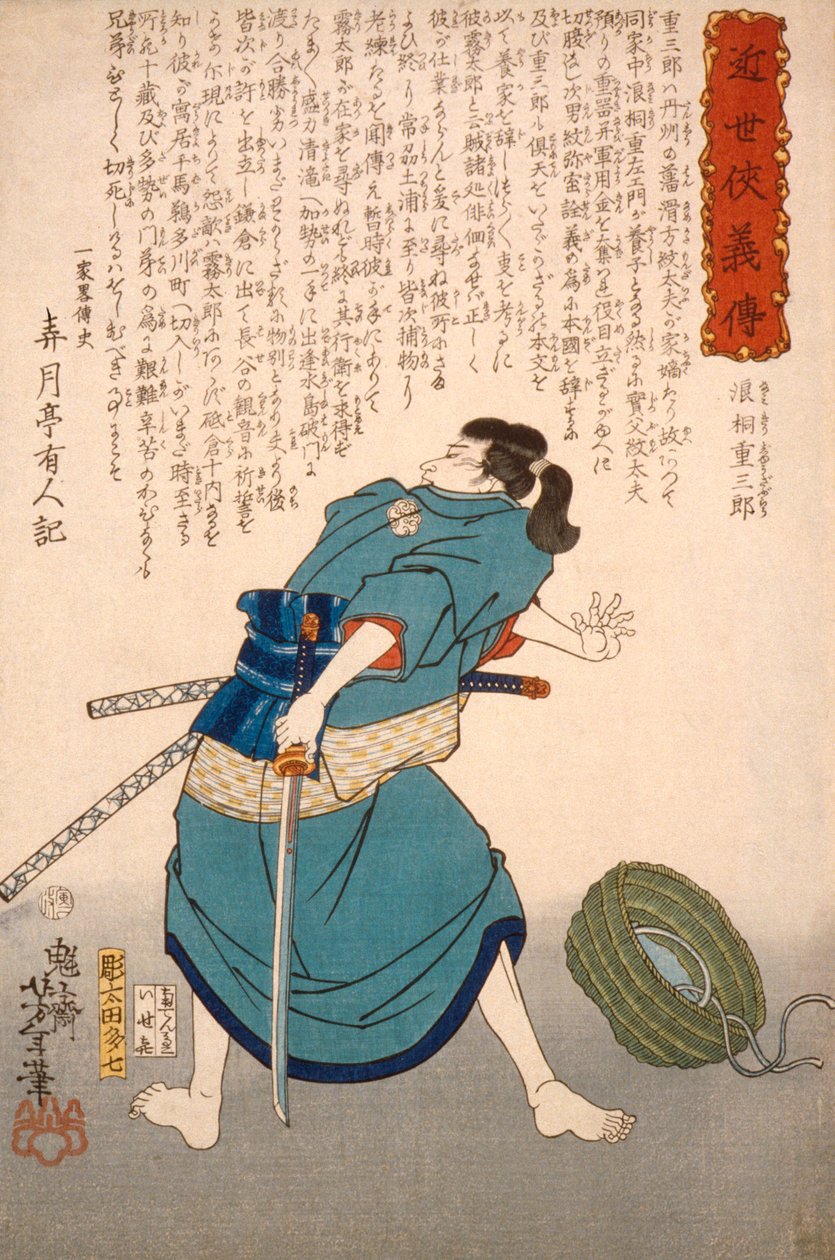 近世侠義傳
浪桐重三郎
重三郎ハ丹州の藩滑方紋太夫が家嫡たり故あつて
同家中浪桐重左エ門が養子となる然るに實父紋太夫
預りの重器并軍用金を奪はれ役目立ざるがゆへに
切腹なし次男紋弥密詮義の為に本國を辞するに
及び重三郎も倶天をいたゞかざるの本文を
以て養家を辞し
彼霧太郎と云賊諸処徘徊なせバ正しく
彼が仕業ならんと爰に尋ね彼所にさま
よひ終り常刕土浦に至り皆次捕物に
老練なるを聞傳え暫時彼が手にありて
霧太郎が在家を尋ぬれども終に其行衛を求得ず
たま〱盛力清滝へ加勢の一手に出逢水島破門に
渡り合勝劣いまだ分たざる
皆次が許を出立し鎌倉に出て長谷の観音に祈誓を
怨敵ハ霧太郎にあらず砥倉十内なるを
知り彼が寓居千馬鵜多川町へ切入しがいまだ時至らざる
所死十藏及び多勢の門弟の為に艱難辛苦の
兄弟ひとしく切死
一家畧傳史
弄月亭有人記
魁齋芳年筆
彫太田多七
いせ㐂